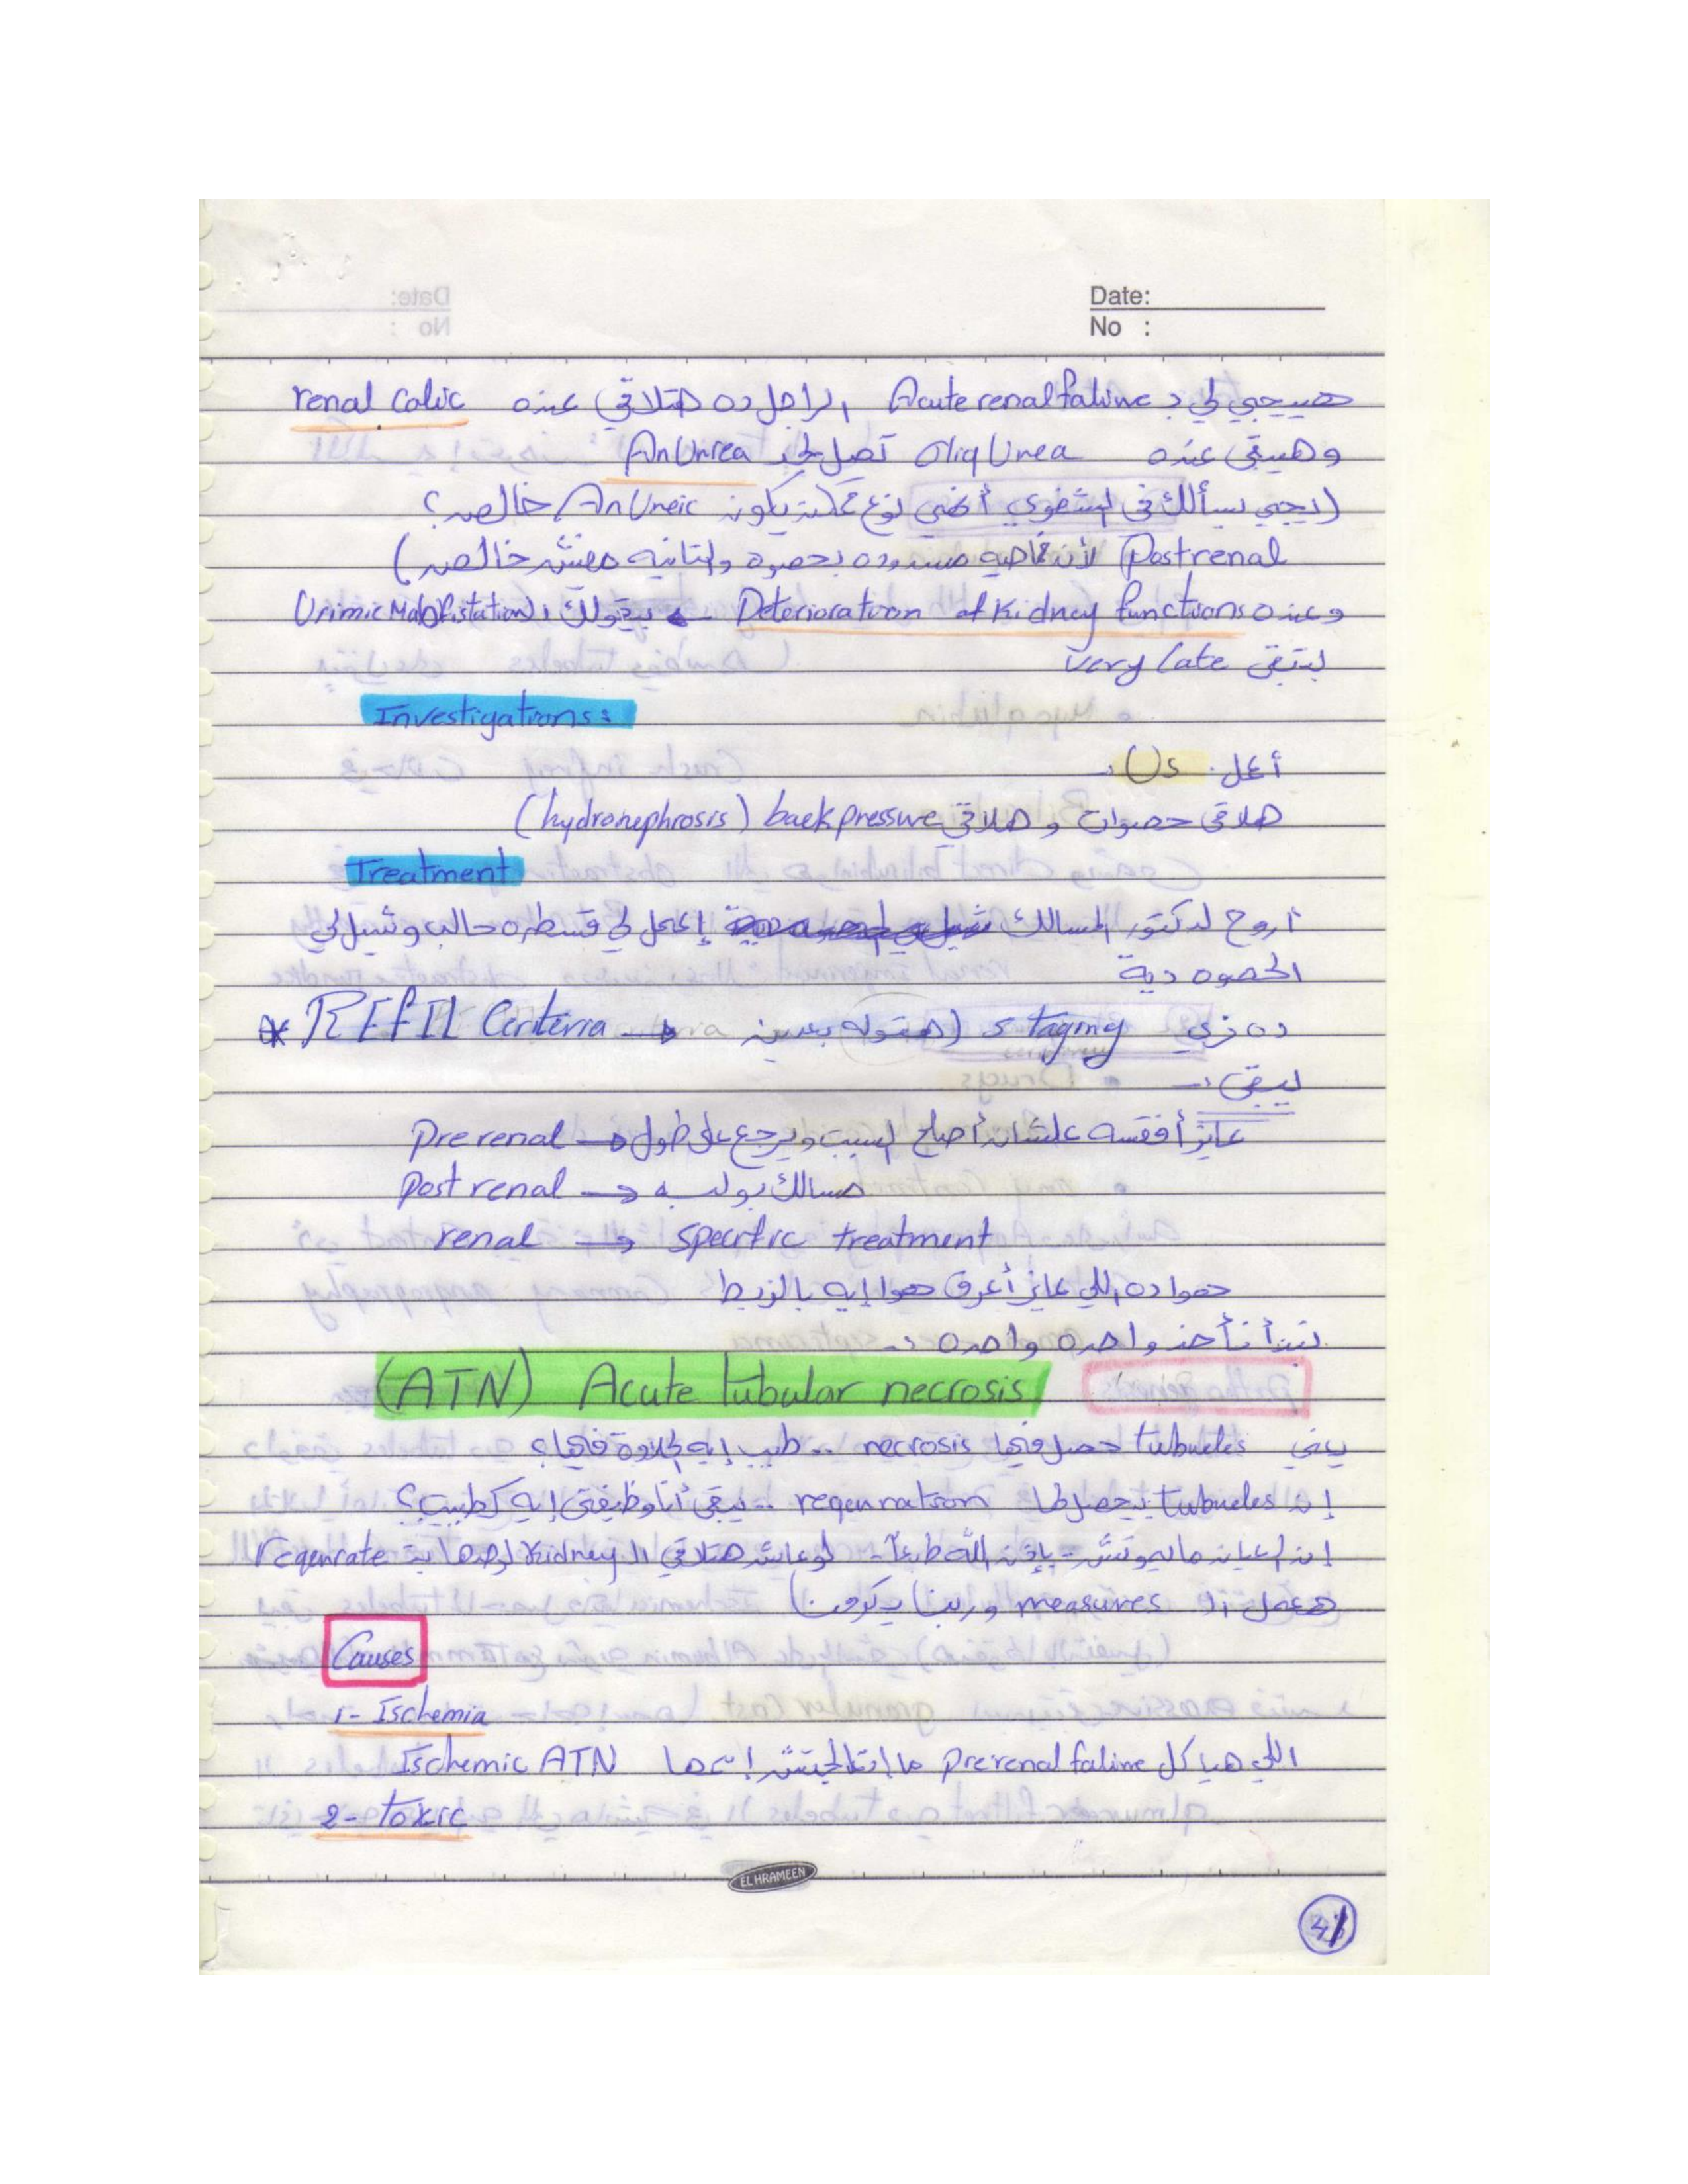 Date:
No :
هييجيلي بـ Acute renal faluire الراجل ده هتلاقي عنده renal colic
وهيبقى عنده OliqUrea تصل لحد AnUrea
(يجي يسألك في الشفوي أنهي نوع ممكن يكون AnUreic خالص؟
Postrenal لأن ناحيه مسدوده بحصوه والتانيه مفيش خالص)
وعنده Deterioratiron of Kidney functions ← بيقولك ال Urimic Manifistation
بتبقى very late
Investigations:
أعمل US :-
هلاقي حصوات و هلاقي back pressure (hydronephrosis)
Treatment
أروح لدكتور المسالك إعمل لي قسطره حالب وشيل لي
الحصوه دية
ده زي staging (هنقوله بعدين → REFIL Criteria *
ليبقى :-
Pre renal → عايز أفقسه علشان أصلح السبب ويرجع على طول
Post renal → مسالك بوليه
renal → specific treatment
هوا ده اللي عايز أعرف هوا إيه بالزبط
نبدأ نأخد واحده واحده :-
(ATN) Acute tubular necrosis
يعني tubueles حصل فيها necrosis .. طيب إيه الحلاوة فيها؟
إن tubueles بيحصل لها regenration .. يبقى أنا وظيفتي إيه كطبيب؟
إن العيان مايموتش - بإذن الله طبعاً - لو عاش هتلاقي ال Kidney لوحدها بـ regenrate
هعمل ال measures وربنا يكرمنا)
Causes
1- Ischemia
اللي هيا كل prerenal faluire ما اتعالجتش إسمها Ischemic ATN
2- toxic
EL HRAMEEN
41